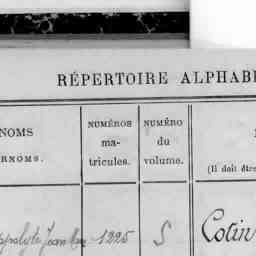 RÉPERTOIRE ALPHAB
NOMS
RNOMS.
NUMÉROS
ma-
tricules.
NUMÉRO
du
volume.
(Il doit êtr
1225
S
Colin